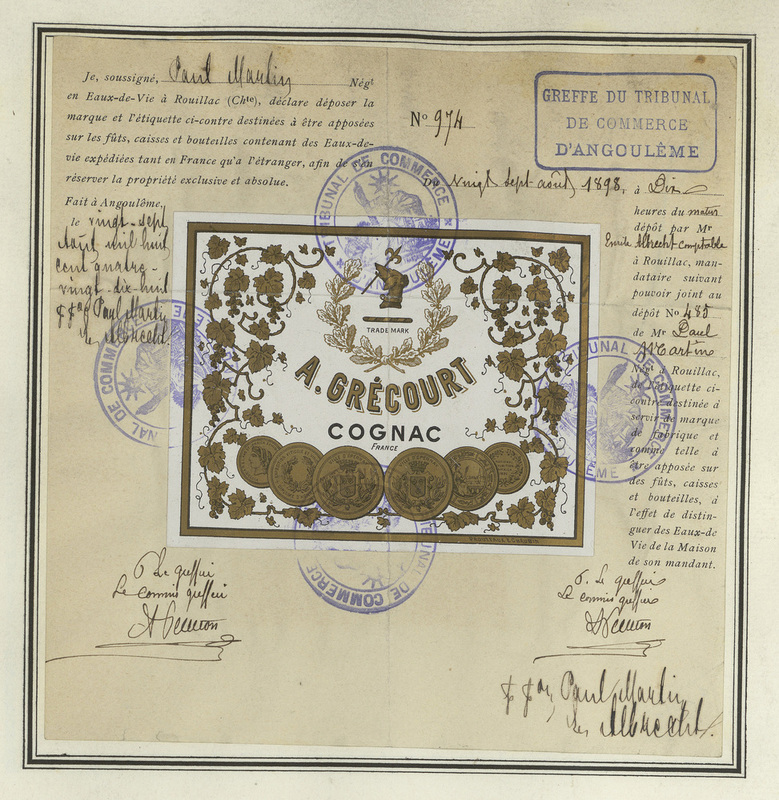 Je, soussigné, Paul Martin Négt
en Eaux-de-Vie à Rouillac (Chte), déclare déposer la
marque et l'étiquette ci-contre destinées à être apposées
sur les fûts, caisses et bouteilles contenant des Eaux-de-
vie expédiées tant en France qu'a l'étranger, afin de s'en
réserver la propriété exclusive et absolue.
Fait à Angoulême,
le vingt-sept
Août mil huit
cent quatre-
vingt-dix-huit
Paul Martin
Albrecht
No 974
GREFFE DU TRIBUNAL
DE COMMERCE
D'ANGOULÊME
Du Vingt sept août 1898, à Dix
heures du matin
dépôt par Mr
Emile Albrecht comptable
à Rouillac, man-
dataire suivant
pouvoir joint au
dépôt No 485
de Mr Paul
Martin
Négt à Rouillac,
de l'étiquette ci-
contre destinée à
servir de marque
de fabrique et
comme telle à
être apposée sur
des fûts, caisses
et bouteilles, à
l'effet de distin-
guer des Eaux-de
Vie de la Maison
de son mandant.
TRIBUNAL DE COMMERCE
TRADE MARK
A. GRÉCOURT
COGNAC
FRANCE
TRIBUNAL DE COMMERCE
TRIBUNAL DE COMMERCE
TRIBUNAL DE COMMERCE
P. Le greffier
Le commis greffier
P. Le greffier
Le commis greffier
Paul Martin
Albrecht